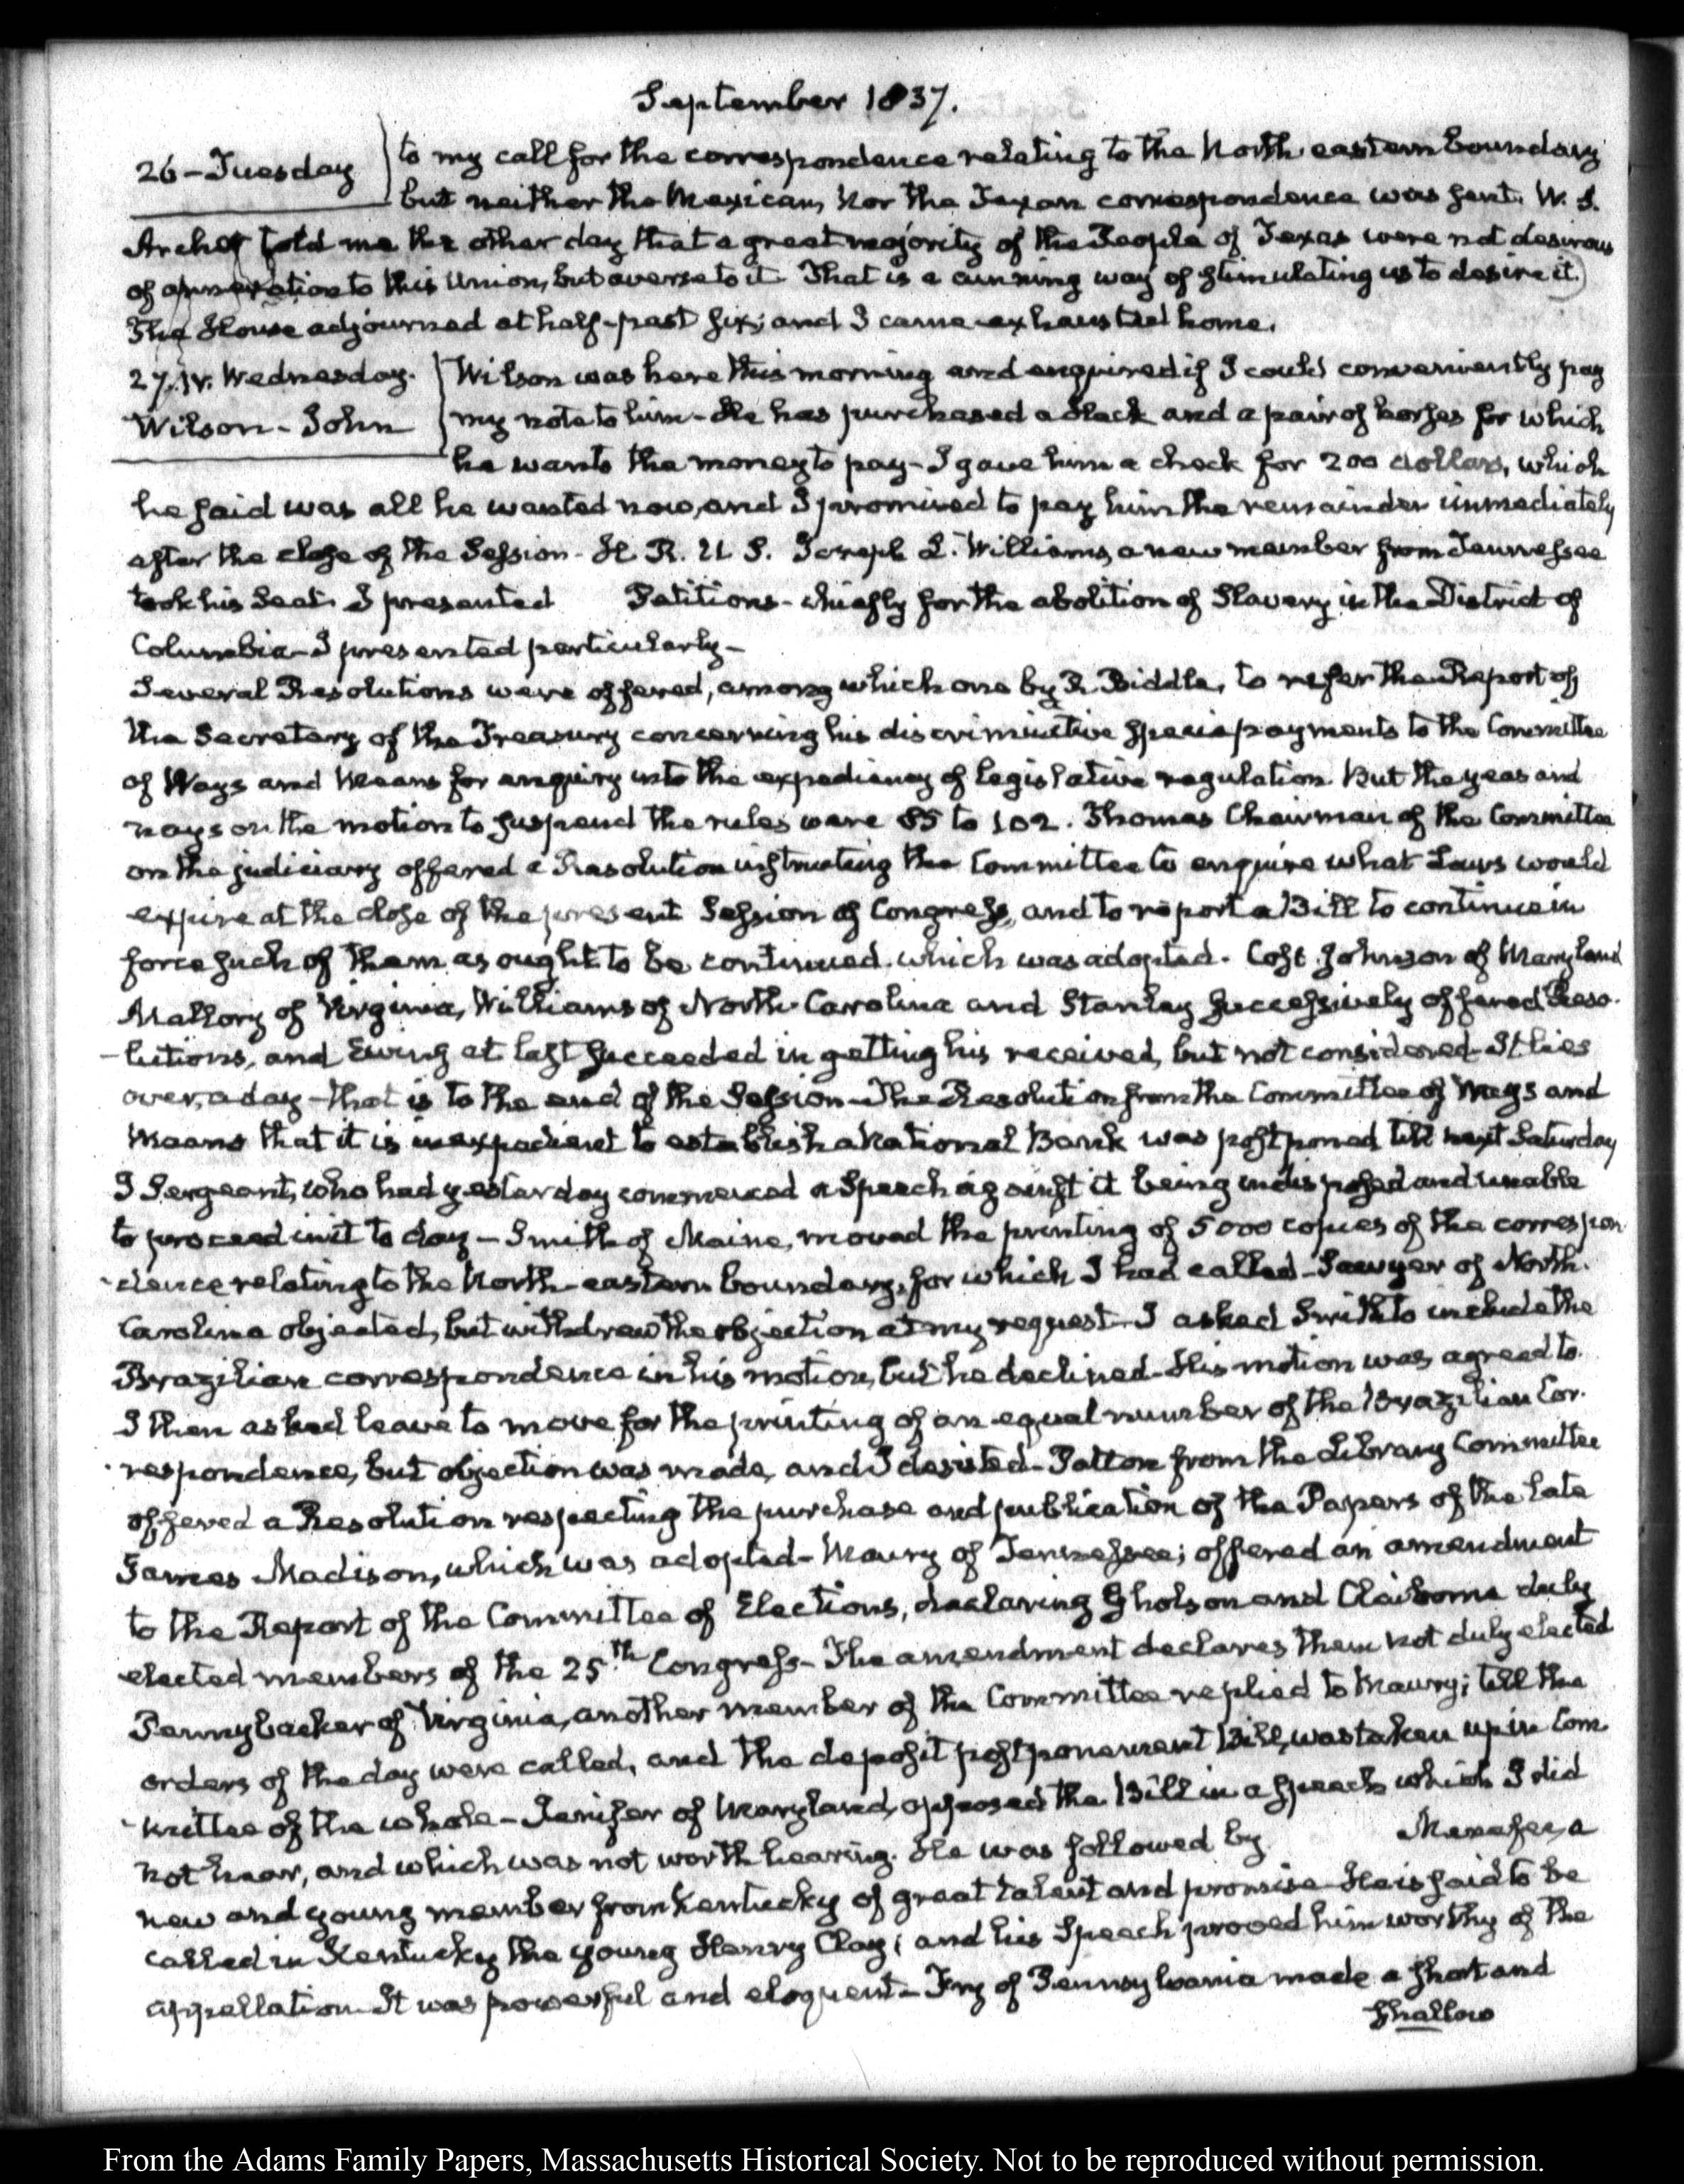 September 1837.
26 - Tuesday
to my call for the correspondence relating to the North eastern boundary
but neither the Mexican, nor the Texan correspondence was sent. W. S.
Archer told me the other day that a great majority of the People of Texas were not desirous
of annexation to this Union, but averse to it. That is a cunning way of stimulating us to desire it.)
The House adjourned at half-past six; and I came exhausted home.
27. IV. Wednesday.
Wilson - John
Wilson was here this morning and enquired if I could conveniently pay
my note to him - He has purchased a Hack and a pair of horses for which
he wants the money to pay - I gave him a check for 200 dollars, which
he said was all he wanted now, and I promised to pay him the remainder immediately
after the close of the Session - H. R. U S. Joseph L. Williams, a new member from Tennessee
took his Seat. I presented Petitions - chiefly for the abolition of Slavery in the District of
Columbia - I presented particularly -
Several Resolutions were offered, among which one by R. Biddle, to refer the Report of
the Secretary of the Treasury concerning his discriminative specie payments to the Committee
of Ways and Means for enquiry into the expediency of legislative regulation. But the yeas and
nays on the motion to suspend the rules were 85 to 102. Thomas Chairman of the Committee
on the judiciary offered a Resolution instructing the Committee to enquire what Laws would
expire at the close of the present Session of Congress, and to report a Bill to continue in
force such of them as ought to be continued. which was adopted. Cost Johnson of Maryland
Mallory of Virginia, Williams of North-Carolina and Stanley successively offered Reso-
-lutions, and Ewing at last succeeded in getting his received, but not considered - It lies
over, a day - that is to the end of the Session - The Resolution from the Committee of Ways and
Means that it is inexpedient to establish a National Bank was postponed till next Saturday
J Sergeant, who had yesterday commenced a Speech against it being indisposed and unable
to proceed in it to day - Smith of Maine, moved the printing of 5000 copies of the correspon
-dence relating to the North-eastern boundary, for which I had called - Sawyer of North-
Carolina objected, but withdrew the objection at my request - I asked Smith to include the
Brazilian correspondence in his motion, but he declined - His motion was agreed to.
I then asked leave to move for the printing of an equal number of the Brazilian Cor-
-respondence, but objection was made, and I desisted - Patton from the Library Committee
offered a Resolution respecting the purchase and publication of the Papers of the late
James Madison, which was adopted - Maury of Tennessee; offered an amendment
to the Report of the Committee of Elections, declaring Gholson and Claiborne duly
elected members of the 25th. Congress - The amendment declares them not duly elected
Pennybacker of Virginia, another member of the Committee replied to Maury; till the
orders of the day were called, and the deposit postponement Bill, was taken up in Com-
-mittee of the whole - Jenifer of Maryland, opposed the Bill in a speech which I did
not hear, and which was not worth hearing. He was followed by Menefee, a
new and young member from Kentucky of great talent and promise - He is said to be
called in Kentucky the young Henry Clay; and his Speech proved him worthy of the
appellation - It was powerful and eloquent - Fry of Pennsylvania made a short and
shallow
From the Adams Family Papers, Massachusetts Historical Society. Not to be reproduced without permission.